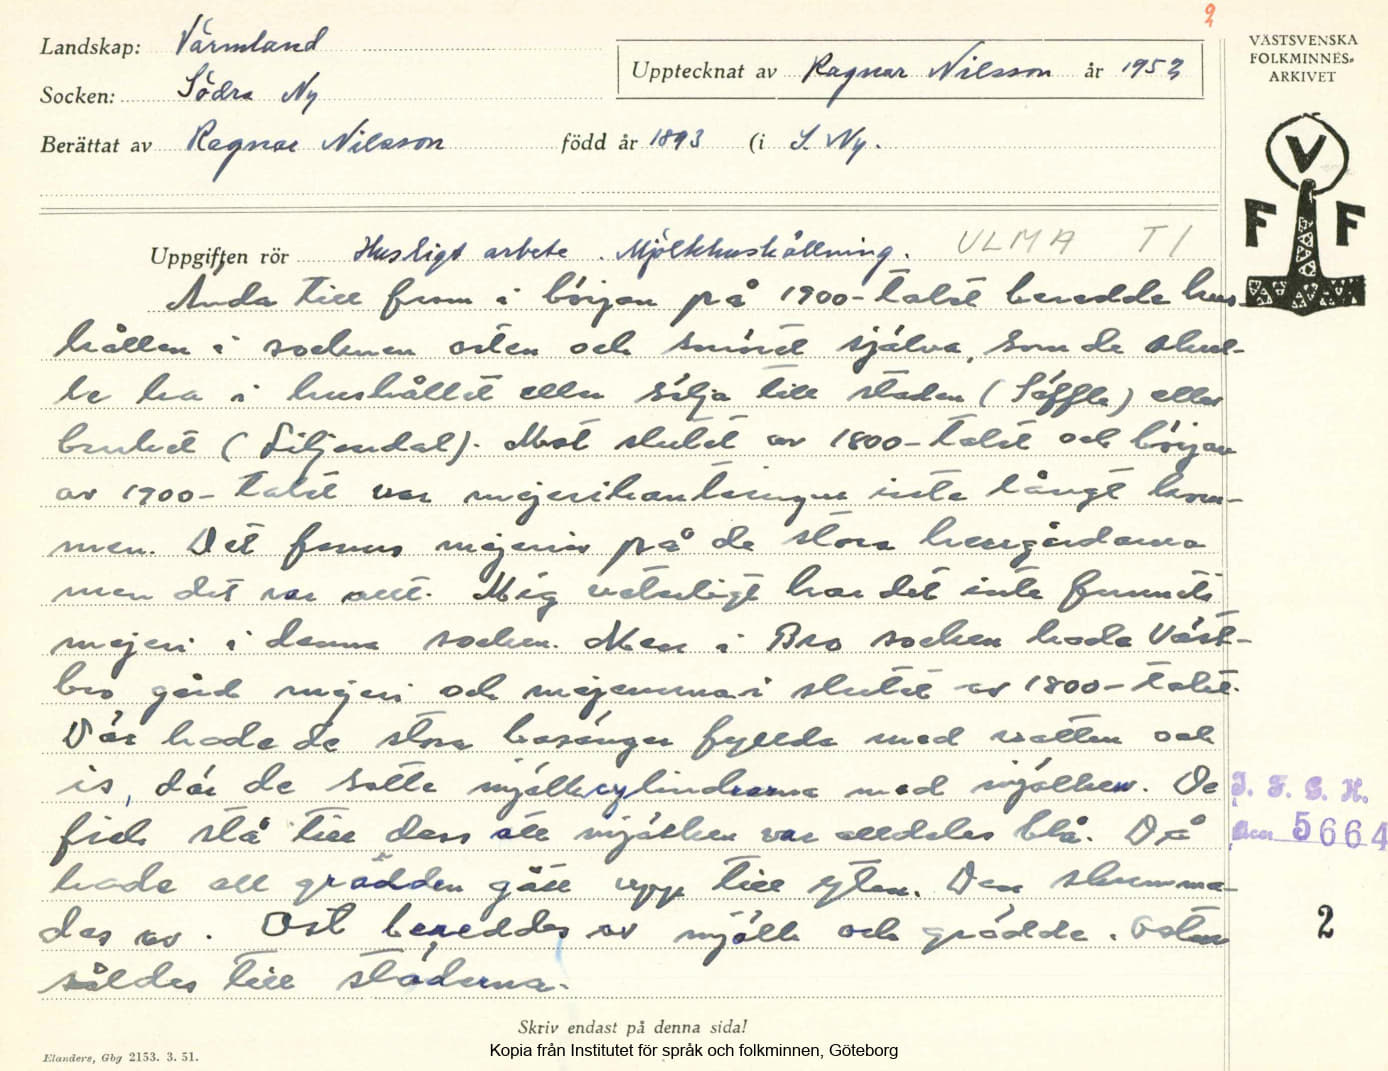 2
Landskap: Värmland
Socken: Södra Ny
Upptecknat av Ragnar Nilsson år 1952
Berättat av Ragnar Nilsson född år 1893 (i S. Ny.
VÄSTSVENSKA
FOLKMINNES-
ARKIVET
V
F F
Uppgiften rör Husligt arbete. Mjölkhushållning. ULMA T1
Ända till fram i början på 1900-talet beredde hus-
hållen i socknen osten och smöret själva, som de skul-
le ha i hushållet eller sälja till staden (Säffle) eller
bruket (Liljendal). Mot slutet av 1800-talet och början
av 1900-talet var mejerihanteringen inte långt kom-
men. Det fanns mejerier på de stora herrgårdarna
men det var allt. Mig veterligt har det inte funnits
mejeri i denna socken. Men i Bro socken hade Väst-
bro gård mejeri och mejerinna i slutet av 1800-talet.
Där hade de stora basänger fyllda med vatten och
is, där de satte mjölkcylindrarna med mjölken. De
fick stå till dess att mjölken var alldeles blå. Då
hade all grädden gått upp till ytan. Den skumma-
des av. Ost bereddes av mjölk och grädde. Osten
såldes till städerna.
I. F. G. H.
Acc 5664
2
Skriv endast på denna sida!
Elanders, Gbg 2153. 3. 51.
Kopia från Institutet för språk och folkminnen, Göteborg